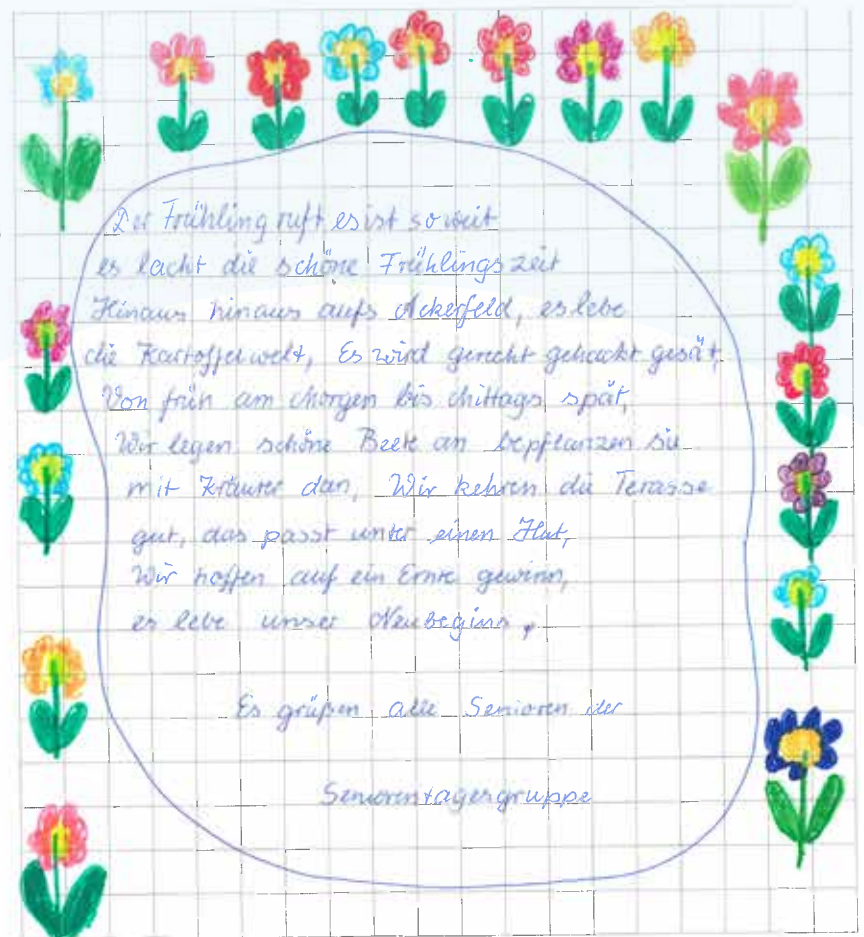 Der Frühling ruft es ist so weit
es lacht die schöne Frühlingszeit
Hinaus hinaus aufs Ackerfeld, es lebe
die Kartoffelwelt, Es wird gerecht gehackt gesät,
Von früh am Morgen bis Mittags spät,
Wir legen schöne Beete an bepflanzen sie
mit Kräuter dan, Wir kehren die Terasse
gut, das passt unter einen Hut,
Wir hoffen auf ein Ernte gewinn,
es lebe unser Neubeginn,
Es grüßen alle Senioren der
Seniorentagesgruppe